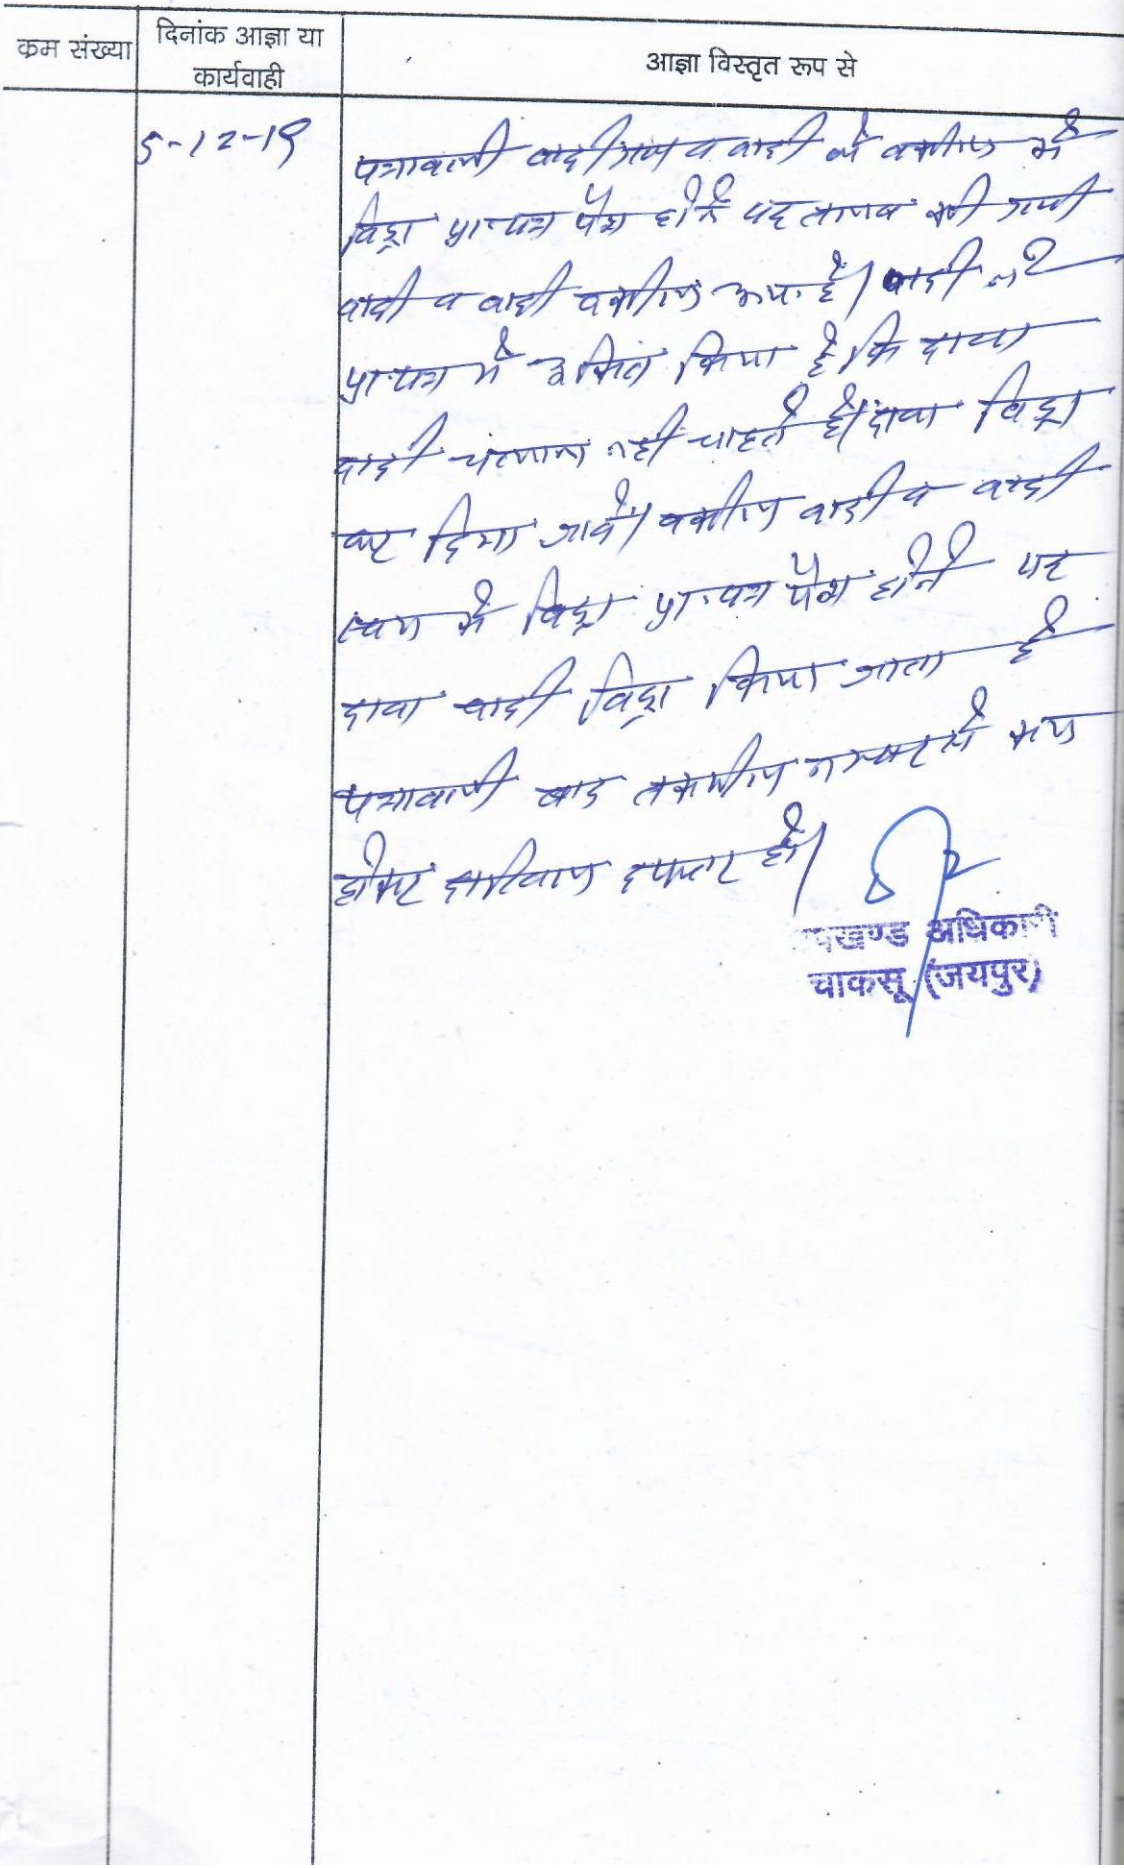 क्रम संख्या
दिनांक आज्ञा या
कार्यवाही
आज्ञा विस्तृत रूप से
5-12-19
पत्रावली वादीगण व वादी के वकील के
विड्रा प्रा.पत्र पेश होने पर तलब की गयी
वादी व वादी वकील उप. है। वादी ने
प्रा.पत्र में अंकित किया है कि दावा
वादी चलाना नही चाहते है। दावा विड्रा
कर दिया जावे। वकील वादी व वादी
स्वयं के विड्रा प्रा.पत्र पेश होने पर
दावा वादी विड्रा किया जाता है
पत्रावली बाद तकमील नम्बर से कम
होकर दाखिल दफ्तर हो।
उपखण्ड अधिकारी
चाकसू (जयपुर)